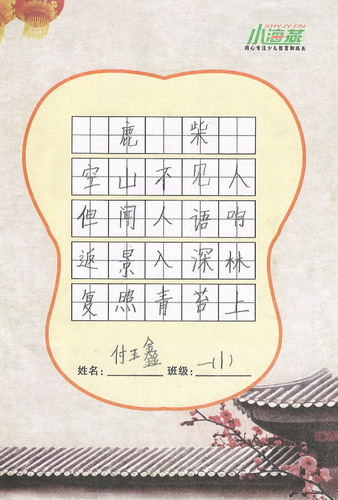 XHYJY.CN
小海燕
用心专注少儿教育和成长
鹿柴
空山不见人
但闻人语响
返景入深林
复照青苔上
付玉鑫
姓名: 班级: 一(1)